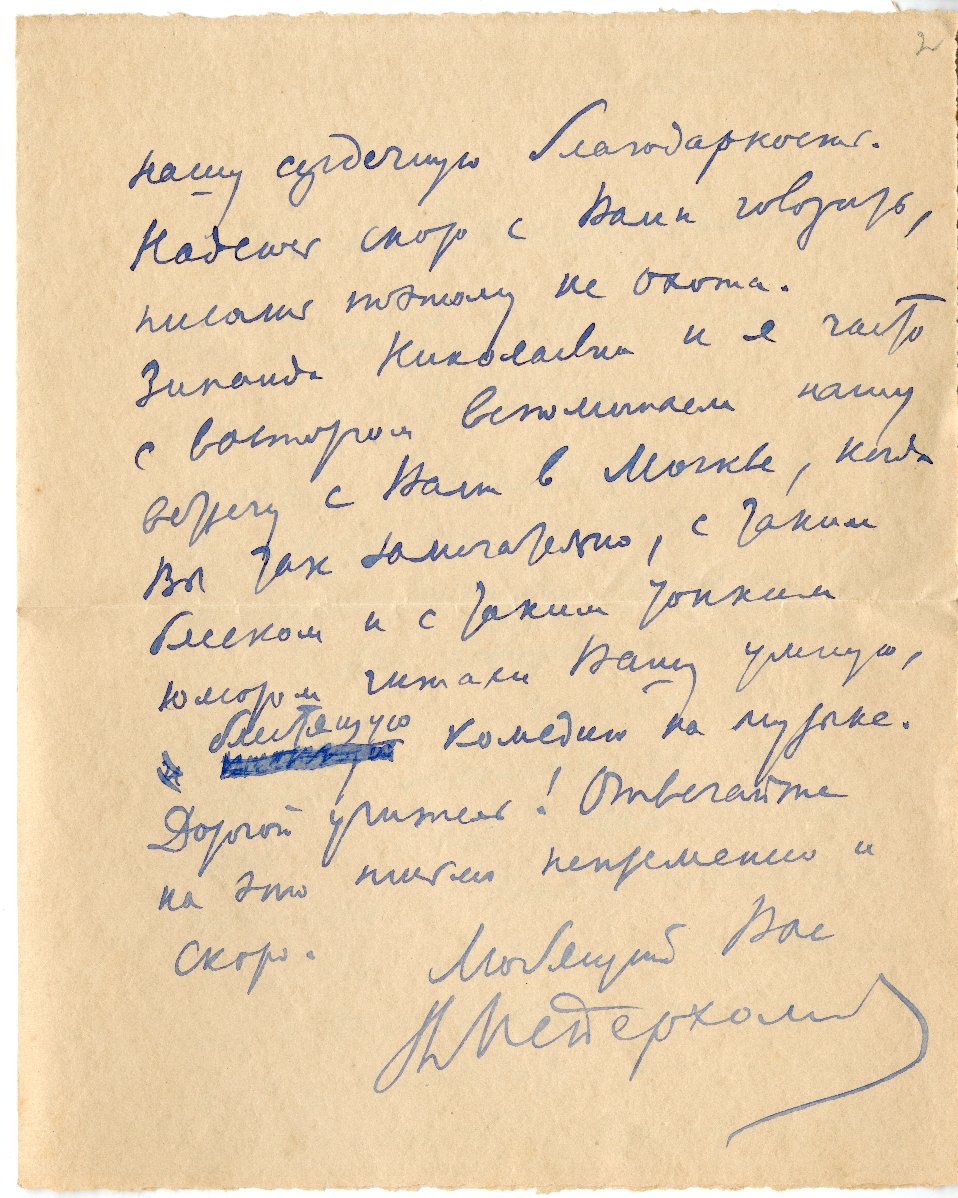 2
нашу сердечную благодарность.
Надеюсь скоро с Вами говорить,
писать поэтому не охота.
Зинаида Николаевна и я часто
с восторгом вспоминаем нашу
встречу с Вами в Москве, когда
Вы так замечательно, с таким
блеском и с таким тонким
юмором читали Вашу умную,
блестящую
и комедию на музыке.
Дорогой учитель! Отвечайте
на это письмо непременно и
скоро.
Любящий Вас
В Мейерхольд